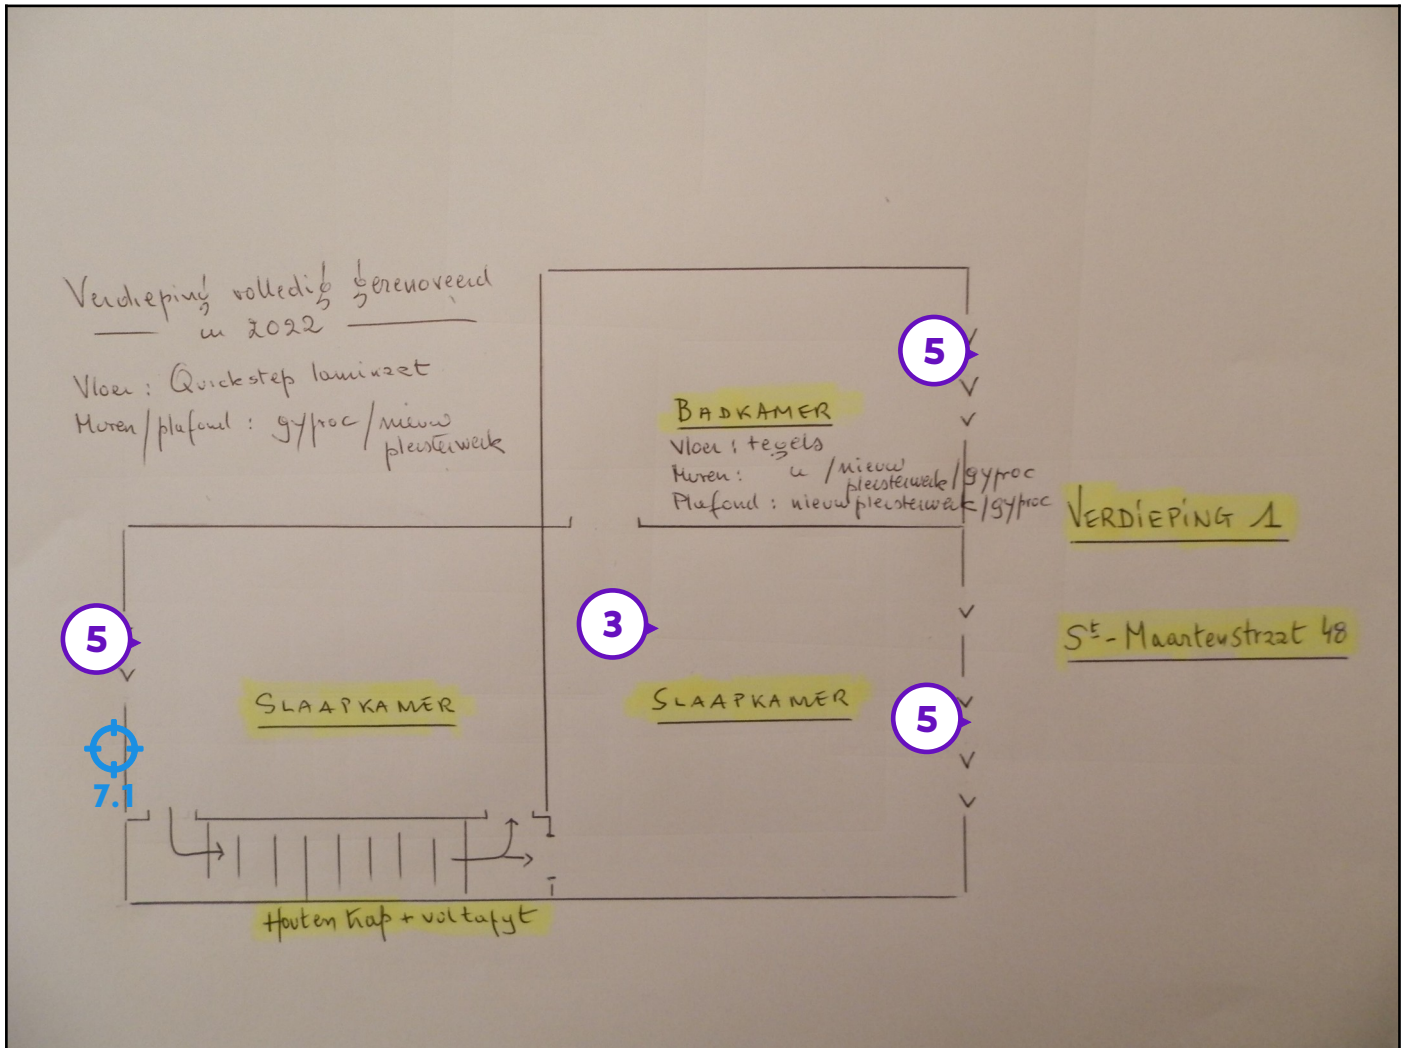 Verdieping volledig gerenoveerd
in 2022
Vloer : Quickstep laminaat
Muren/plafond : gyproc/nieuw
pleisterwerk
5
BADKAMER
Vloer : tegels
Muren : " /nieuw pleisterwerk/gyproc
Plafond : nieuw pleisterwerk/gyproc
VERDIEPING 1
5
3
St-Maartenstraat 48
SLAAPKAMER
SLAAPKAMER
5
7.1
Houten trap + vol tapyt